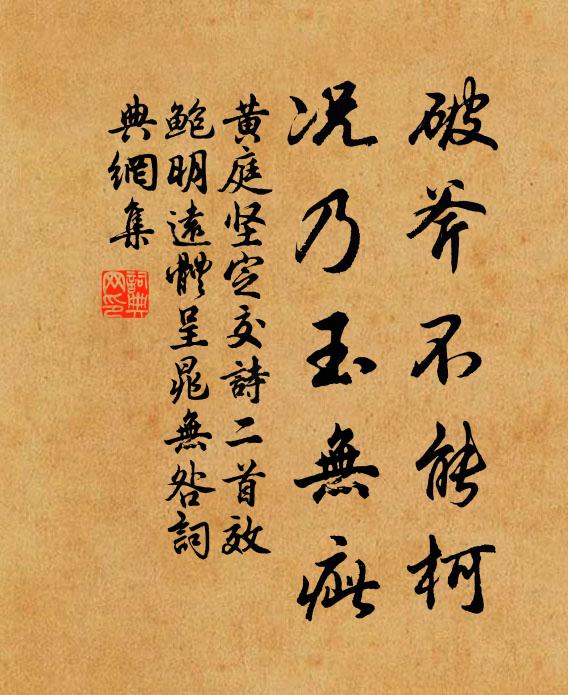 破斧不能柯
况乃玉無疵
黄庭坚定交詩二首效
鲍明遠體呈晁無咎詞
典網集
詞典网印